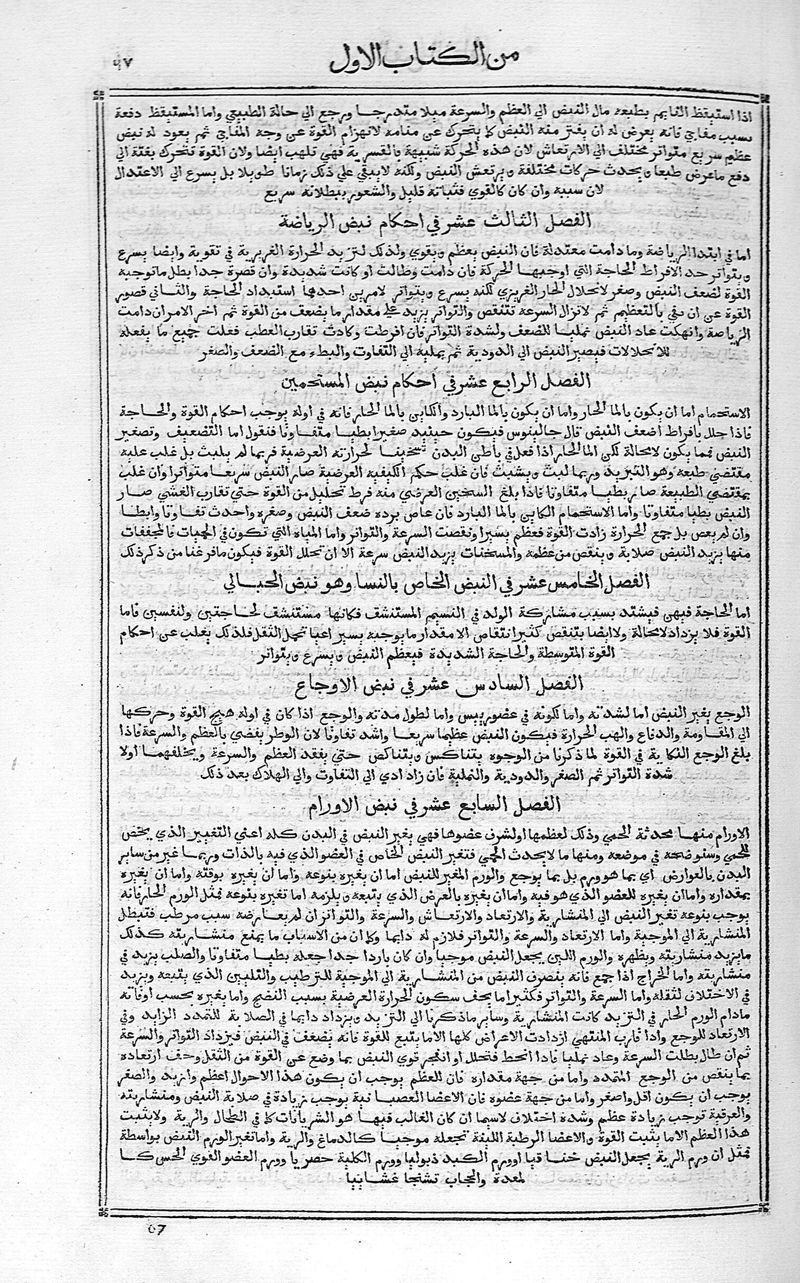 من الكتاب الاول
٥٧
اذا استيقظ النايم بطبعه مال النبض الى العظم والسرعة ميلا متدرجا ورجع الى حالة الطبيعي واما المستيقظ دفعة
بسبب مفاجي فانه يعرض له ان يفتر منه النبض كما يتحرك عن منامه لانهزام القوة عن وجه المفاجي ثم يعود له نبض
عظيم سريع متواتر مختلف الى الارتعاش لان هذه الحركة شبيهة بالقسرية فهي تلهب ايضا ولان القوة تتحرك بغتة الى
دفع ما عرض طبعا ويحدث حركات مختلفة ويرتعش النبض ولكنه لا يبقي على ذلك زمانا طويلا بل يسرع الى الاعتدال
لان سببه وان كان كالقوي فثباته قليل والشعور ببطلانه سريع
الفصل الثالث عشر في احكام نبض الرياضة
اما في ابتدا الرياضة وما دامت معتدلة فان النبض يعظم ويقوي وذلك لتزيد الحرارة الغريزية في تقوية وايضا يسرع
ويتواتر حد الافراط للحاجة التي اوجبها الحركة فان دامت وطالت او كانت شديدة وان قصرة جدا بطل ما توجبه
القوة لضعف النبض وصغر لانحلال الحار الغريزي لكنه يسرع ويتواتر لامرين احدهما استبداد الحاجة والثاني قصور
القوة عن ان تفي بالتعظيم ثم لا تزال السرعة تنتقص والتواتر يزيد على مقدار ما يضعف من القوة ثم اخر الامران دامت
الرياضة وانهكت عاد النبض نمليا للضعف ولشدة التواتر فان افرطت وكادت تقارب العطب فعلت جميع ما يفعله
للانحلالات فيصير النبض الى الدودية ثم يميله الى التفاوت والبطء مع الضعف والصغر
الفصل الرابع عشر في احكام نبض المستحمين
الاستحمام اما ان يكون بالما الحار واما ان يكون بالما البارد والكاين بالما الحار فانه في اوله يوجب احكام القوة والحاجة
فاذا حلل بافراط اضعف النبض قال جالينوس فيكون حينيذ صغيرا بطيا متفاوتا فنقول اما التضعيف وتصغير
النبض فما يكون لا محالة لكن الما الحار اذا فعل في باطن البدن تسخينا لحرارته العرضية فربما لم يلبث بل غلب عليه
مقتضي طبعه وهو التبريد وربما لبث وبشبث فان غلب حكم الكيفيه العرضية صار النبض سريعا متواترا وان غلب
بمقتضي الطبيعة صار بطيا متفاوتا فاذا بلغ التسخين العرضي منه فرط تحليل من القوة حتي تقارب الغشي صار
النبض بطيا متفاوتا واما الاستحمام الكاين بالما البارد فان غاص برده ضعف النبض وصغره واحدث تفاوتا وابطا
وان لم يغص بل جمع الحرارة زادت القوة فعظم يسيرا ونقصت السرعة والتواتر واما المياه التي تكون في الحميات فالمجففات
منها يزيد النبض صلابة وينقص من عظمه والمسخنات يزيد النبض سرعة الا ان تحلل القوة فيكون ما فرغنا من ذكر ذلك
الفصل الخامس عشر في النبض الخاص بالنسا وهو نبض الحبالي
اما الحاجة فيهن فيشتد بسبب مشاركة الولد في النسيم المستنشف فكانها مستنشف لحاجتين ولنفسين فاما
القوة فلا يزداد لا محالة ولا ايضا ينتقص كثير انتقاص الا مقدار ما يوجبه يسير اعيا تحمل الثقل فلذلك يغلب عن احكام
القوة المتوسطة والحاجة الشديدة فيعظم النبض ويسرع ويتواتر
الفصل السادس عشر في نبض الاوجاع
الوجع يغير النبض اما لشدته واما لكونه في عضو رييس واما لطول مدته والوجع اذا كان في اوله هيج القوة وحركها
الى المقاومة والدفاع والهب الحرارة فيكون النبض عظيما سريعا واشد تفاوتا لان الوطر يفضي بالعظم والسرعة فاذا
بلغ الوجع النكاية في القوة لما ذكرنا من الوجوه يتناكس ويتناكص حتي يفقد العظم والسرعة ويخلفهما اولا
شدة التواتر ثم الصغر والدودية والنملية فان زاد ادي الى التفاوت والى الهلاك بعد ذلك
الفصل السابع عشر في نبض الاورام
الاورام منها محدثة الحمي وذلك لعظمها او لشرف عضوها فهي يغير النبض في البدن كله اعني التغيير الذي يخص
الحمي وسنوضحه في موضعه ومنها ما لا يحدث الحمي فتغير النبض الخاص في العضو الذي فيه بالذات وربما غير من ساير
البدن بالعوارض اي بما هو ورم بل بما يوجع والورم المغير للنبض اما ان يغيره بنوعه واما ان يغيره بوقته واما ان يغيره
بمقداره واما ان يغيره للعضو الذي هو فيه واما ان يغيره بالعرض الذي يتبعه ويلزمه اما تغيره بنوعه فمثل الورم الحار فانه
يوجب بنوعه تغير النبض الى المنشارية والارتعاد والارتعاش والسرعة والتواتر ان لم يعارضه سبب مرطب فتبطل
المنشارية الى الموجية واما الارتعاد والسرعة والتواتر فلازم له دايما وكما ان من الاسباب ما يمنع منشاريته كذلك
ما يزيد منشاريته ويظهره والورم اللين يجعل النبض موجيا وان كان باردا جدا جعله بطيا متفاوتا والصلب يزيد في
منشاريته واما الخراج اذا جمع فانه ينصرف النبض من المنشارية الى الموجية للترطيب والتليين الذي يتبعه ويزيد
في الاختلاف لثقله واما السرعة والتواتر فكثيرا ما يخف سكون الحرارة العرضية بسبب النضج واما يغيره بحسب اوقاته
ما دام الورم الحار في التزيد كانت المنشارية وساير ما ذكرنا الى التزيد ويزداد دايما في الصلابة للتمدد الزايد وفي
الارتعاد للوجع واذا قارب المنتهي ازدادت الاعراض كلها الا ما يتبع للقوة فانه يضعف في النبض فيزداد التواتر والسرعة
ثم ان طال بطلت السرعة وعاد نمليا فاذا انحط فتحلل او انفجر قوي النبض بما وضع عن القوة من الثقل وخف ارتعاده
بما ينقص من الوجع المتمدد واما من جهة مقداره فان العظم يوجب ان يكون هذا الاحوال اعظم وازيد والصغر
يوجب ان يكون اقل واصغر واما من جهة عضوه فان الاعضا العصبانية يوجب زيادة في صلابة النبض ومنشاريته
والعرقية توجب زيادة عظم وشدة اختلاف لاسيما ان كان الغالب فيها هو الشريانات كما في الطحال والرية ولا يثبت
هذا العظم الا ما يثبت القوة والاعضا الرطبة اللينة تجعله موجيا كالدماغ والرية واما تغير الورم النبض بواسطة
فمثل ان ورم الرية يجعل النبض خناقيا او ورم الكبد ذبوليا وورم الكلية حصريا وورم العضو القوي الحس كا
لمعدة والحجاب تشنجا غشاييا
57